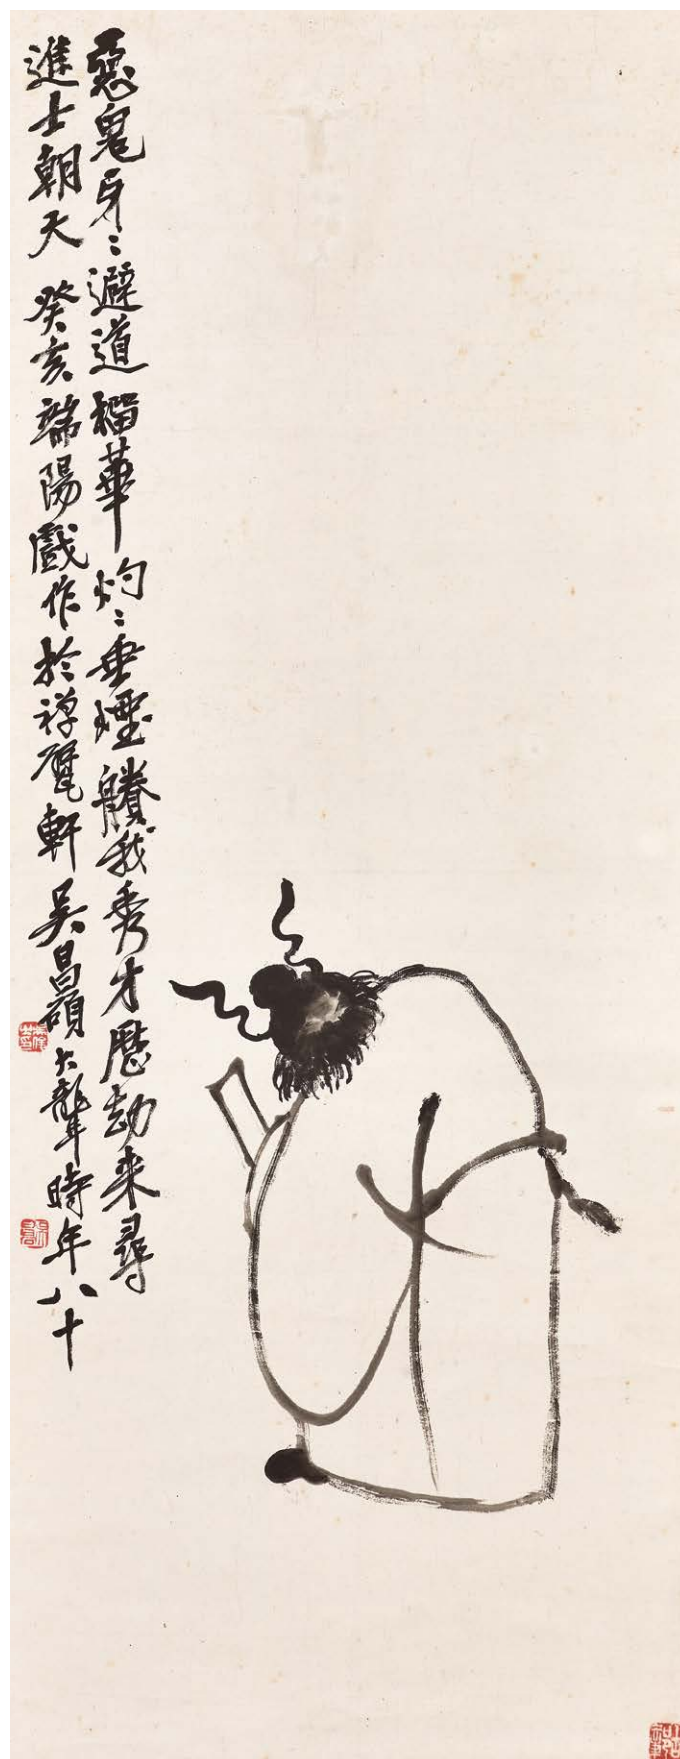 惡鬼牙〻避道榴華灼〻垂煙賸我秀才歷劫來尋
進士朝天癸亥端陽戲作於禪甓軒吳昌碩大聾時年八十